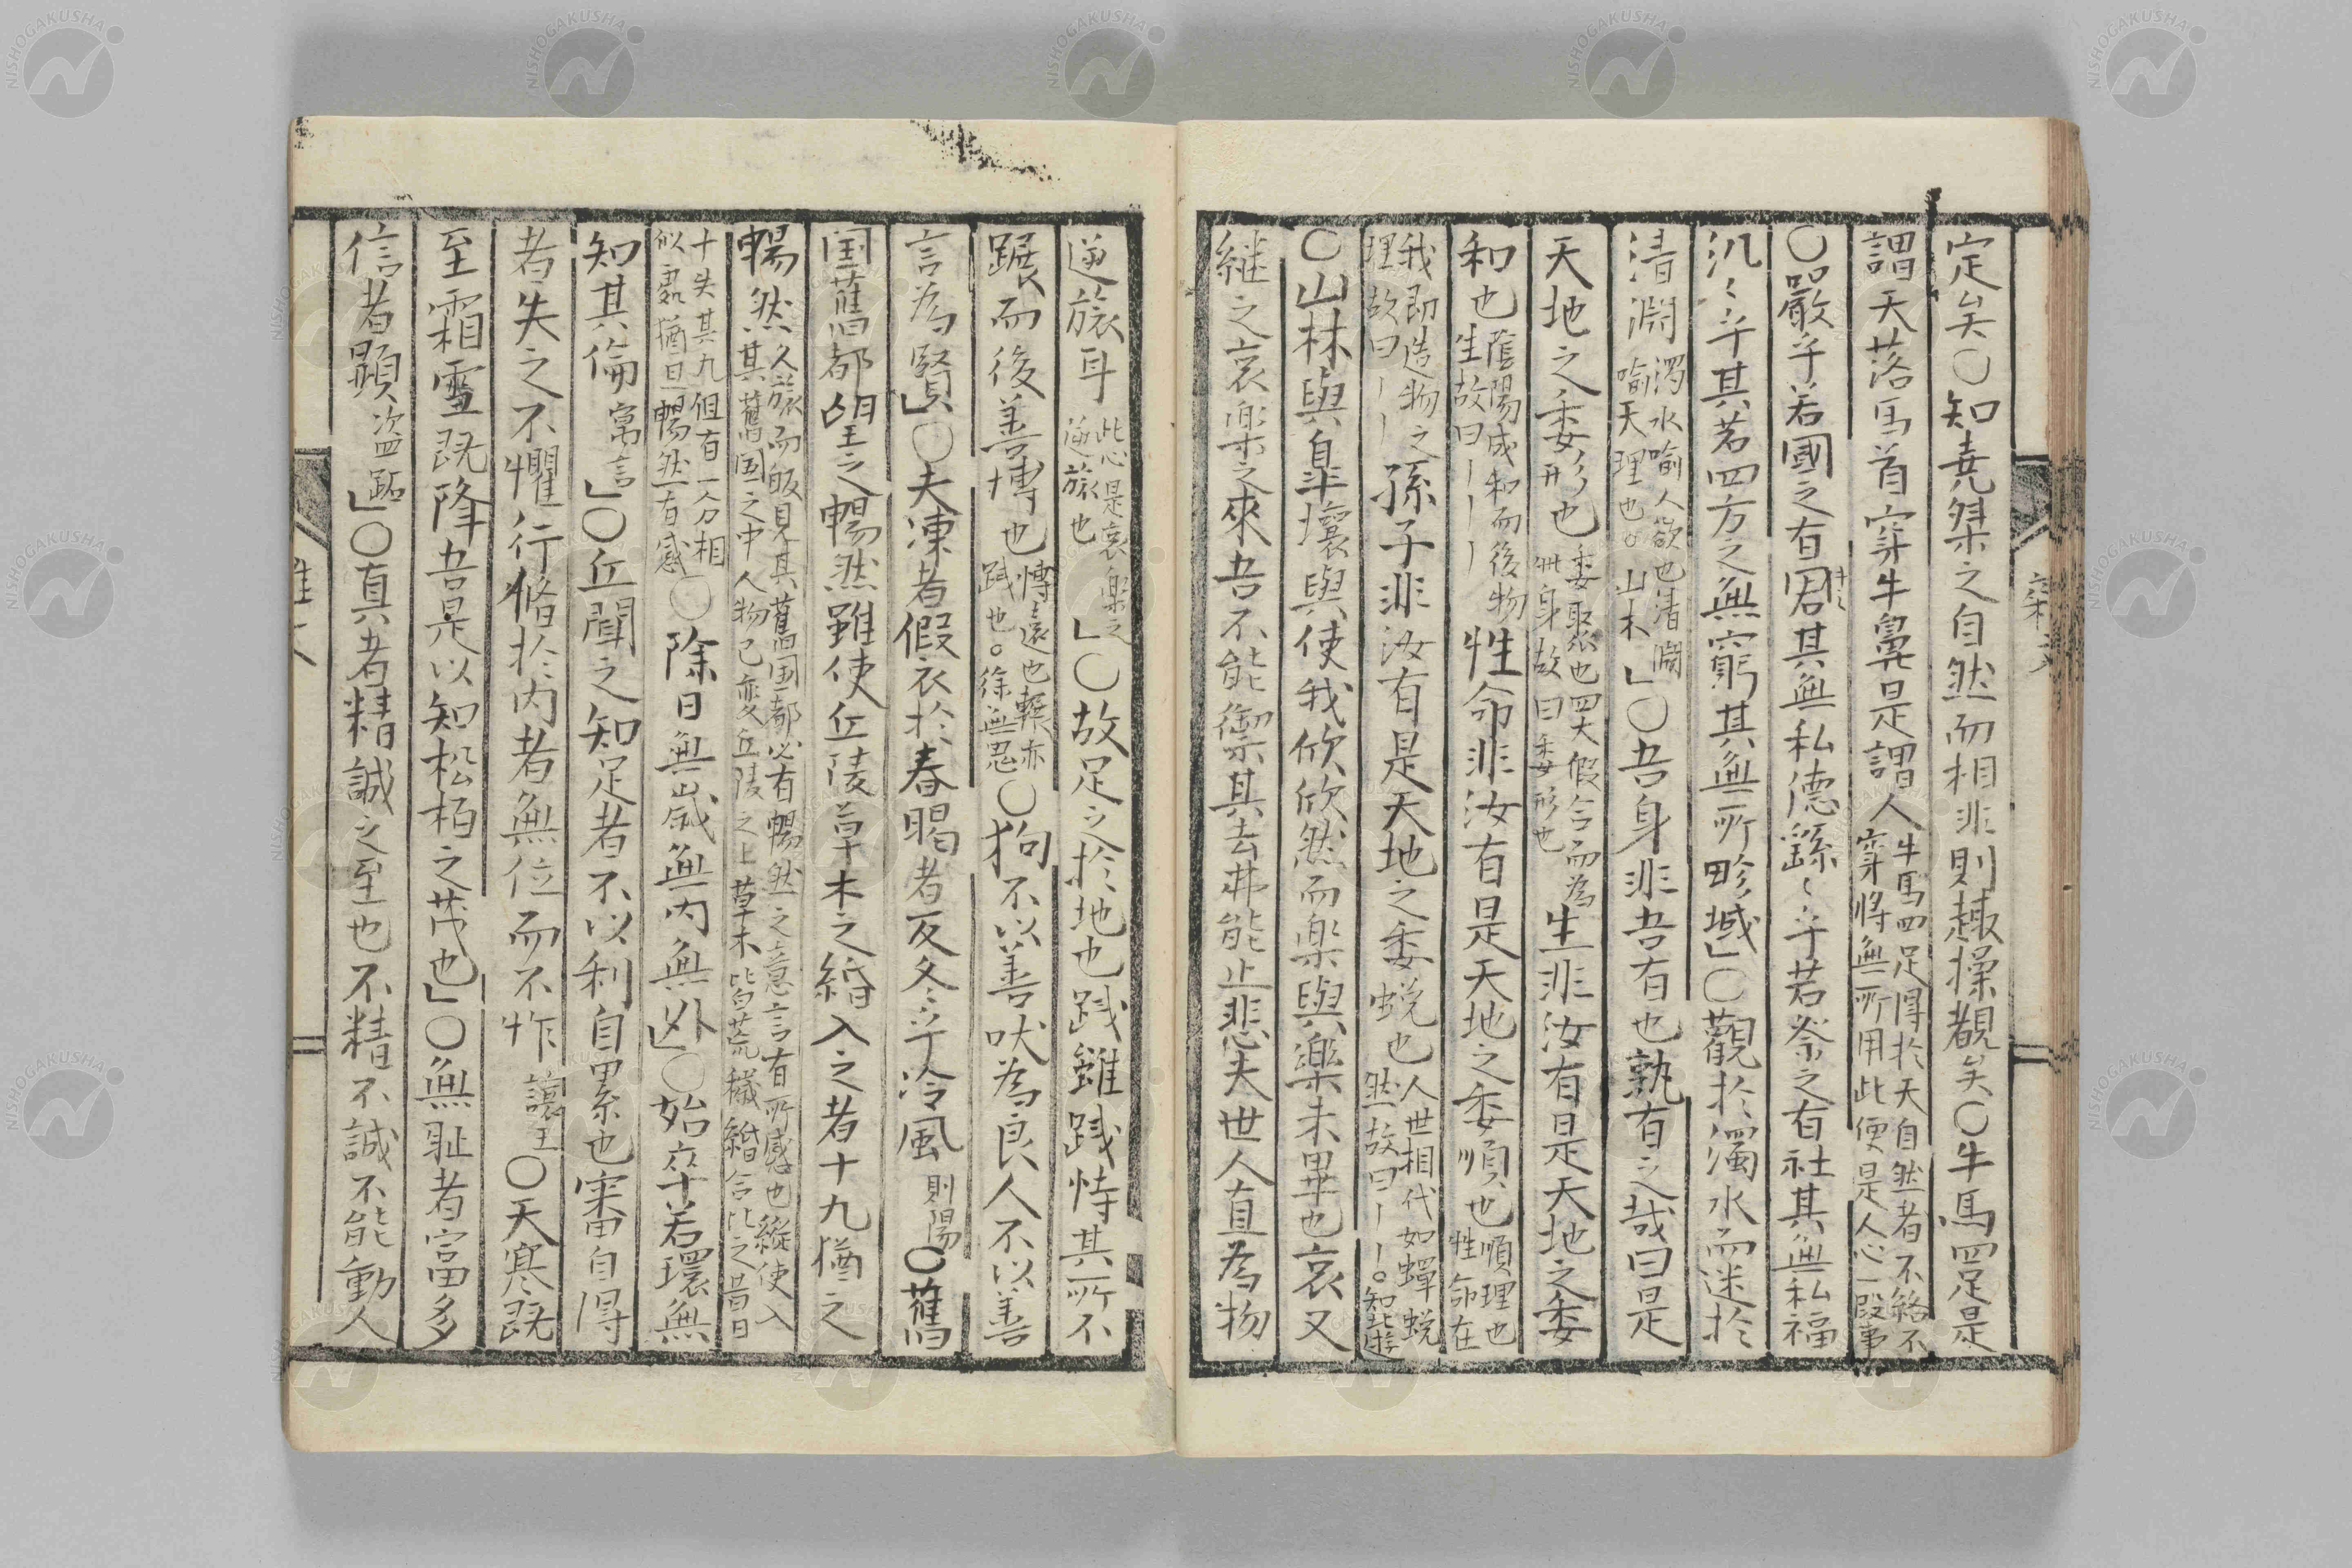 定矣〇知堯桀之自然而相非則趣操覩矣〇牛馬四足是
謂天落馬首穿牛鼻是謂人牛馬四足得於天自然者不絡不
穿將無所用此便是人心一段事
〇嚴乎若國之有君其無私德繇〻乎若祭之有社其無私福
汎〻乎其若四方之無窮其無所畛域」〇觀於濁水而迷於
清淵濁水喻人欲也清淵
喻天理也 山木」〇吾身非吾有也孰有之哉曰是
天地之委形也委聚也四大假合而為
此身故曰委形也生非汝有是天地之委
和也蔭陽成和而後物
生故曰〡〡〡性命非汝有是天地之委順也順理也
性命在
我即造物之
理故曰〡〡孫子非汝有是天地之委蛻也人世相代如蟬蛻
然故曰〡〡。知北遊
〇山林與皐壤與使我欣欣然而楽與樂未畢也哀又
継之哀楽之來吾不能禦其去弗能止悲夫世人直為物
逆旅耳此心是哀楽之
逆旅也」〇故足之於地也踐雖踐恃其所不
蹍而後善博也博遠也蹍亦
踐也。徐無鬼〇狗不以善吠為良人不以善
言為賢」〇夫凍者假衣於春暍者反冬〻乎冷風則陽〇舊
国舊都望之暢然雖使丘陵草木之緡入之者十九猶之
暢然久旅而皈見其舊国都必有暢然之意言有所感也縱使入
其舊国之中人物已変丘陵之上草木皆荒穢緡合比之昔日
十失其九但有一分相
似處猶且暢然有感〇除日無歳無内無外」〇始卒若環無
知其倫寓言」〇丘聞之知足者不以利自累也審自得
者失之不懼行脩於内者無位而不怍讓王〇天寒既
至霜雪既降吾是以知松栢之茂也」〇無耻者富多
信者顯盗跖」〇真者精誠之至也不精不誠不能動人